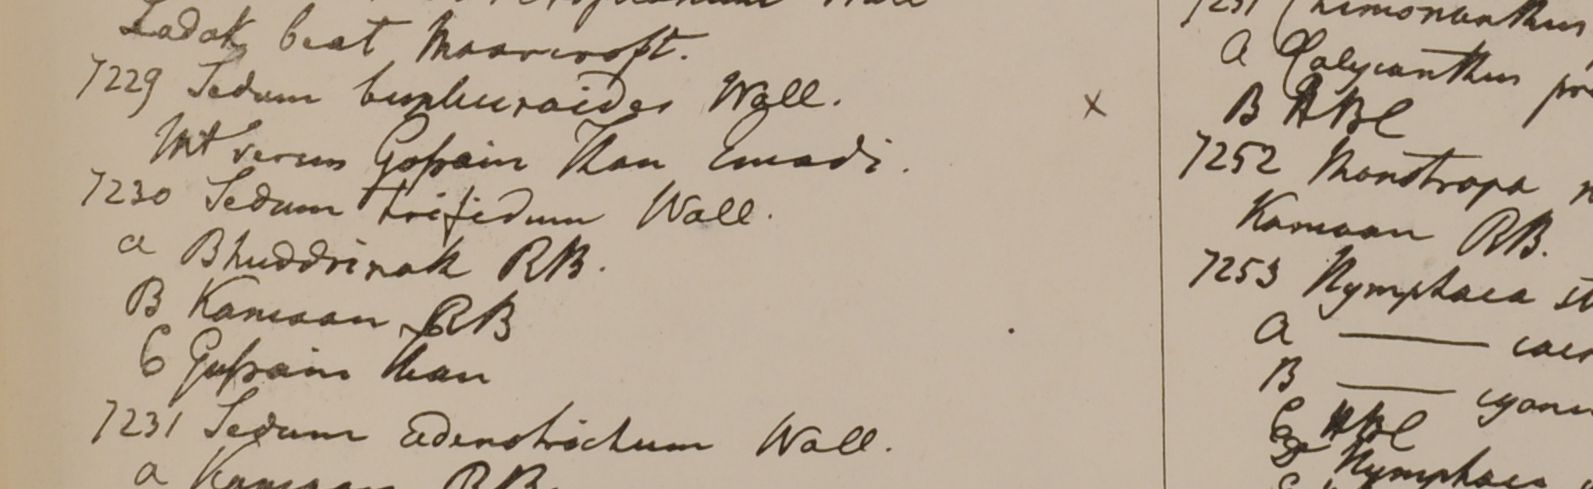 Ladak beat Moorcroft.
7229 Sedum bupleuroides Wall.
Mt versus Gossain Than Emodi.
7230 Sedum trifidum Wall.
a Bhuddrinath RB.
B Kamaon RB
C Gossain than
7231 Sedum adenotrichum Wall.
a Kamaon RB.
x
7251 Chimonanthus
a Calycanthus
B HBC
7252 Monotropa
Kamaon RB.
7253 Nymphaea
a ———
B ———
HBC
Nymphaea